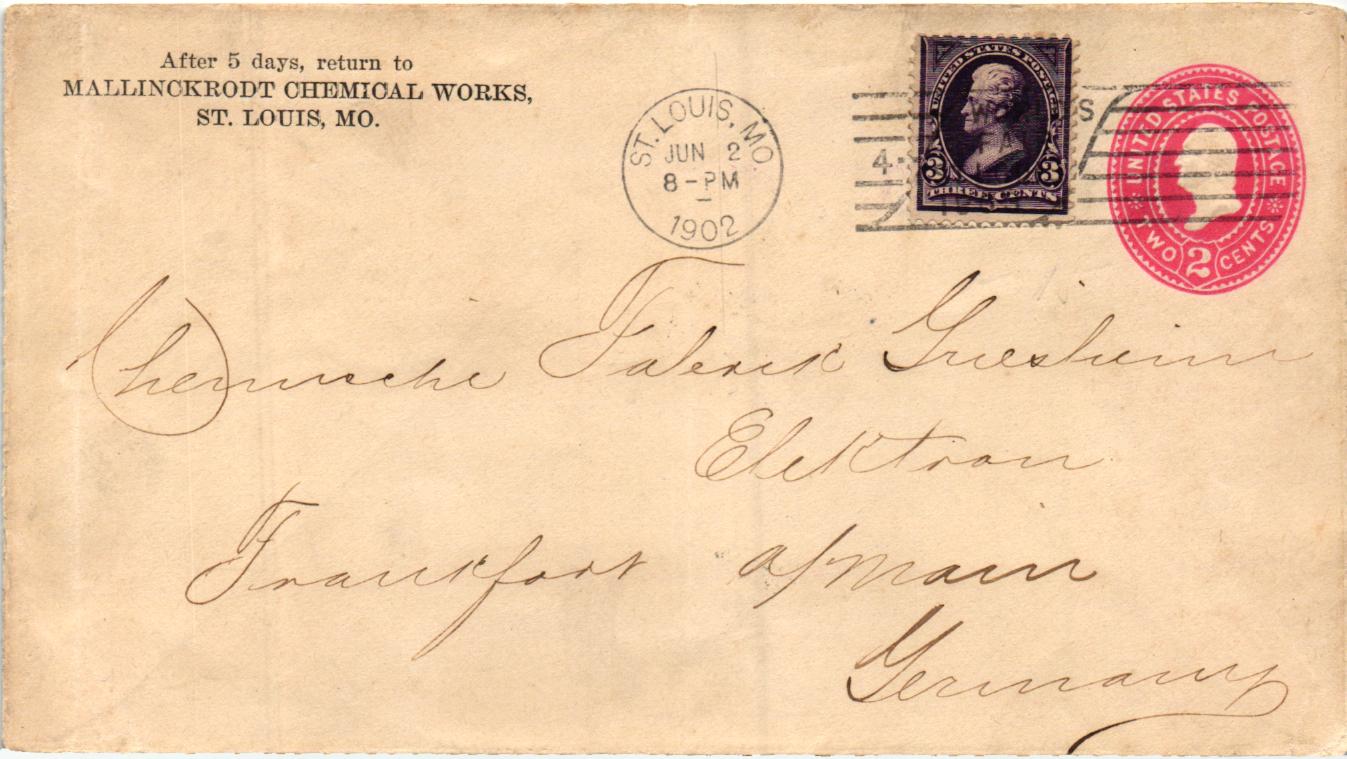 After 5 days, return to
MALLINCKRODT CHEMICAL WORKS,
ST. LOUIS, MO.
ST. LOUIS, MO.
JUN 2
8-PM
1902
4
S
UNITED STATES POSTAGE
3 3
THREE CENTS
UNITED STATES POSTAGE
TWO 2 CENTS
Chemische Fabrik Griesheim
Elektron
Frankfort a/Main
Germany